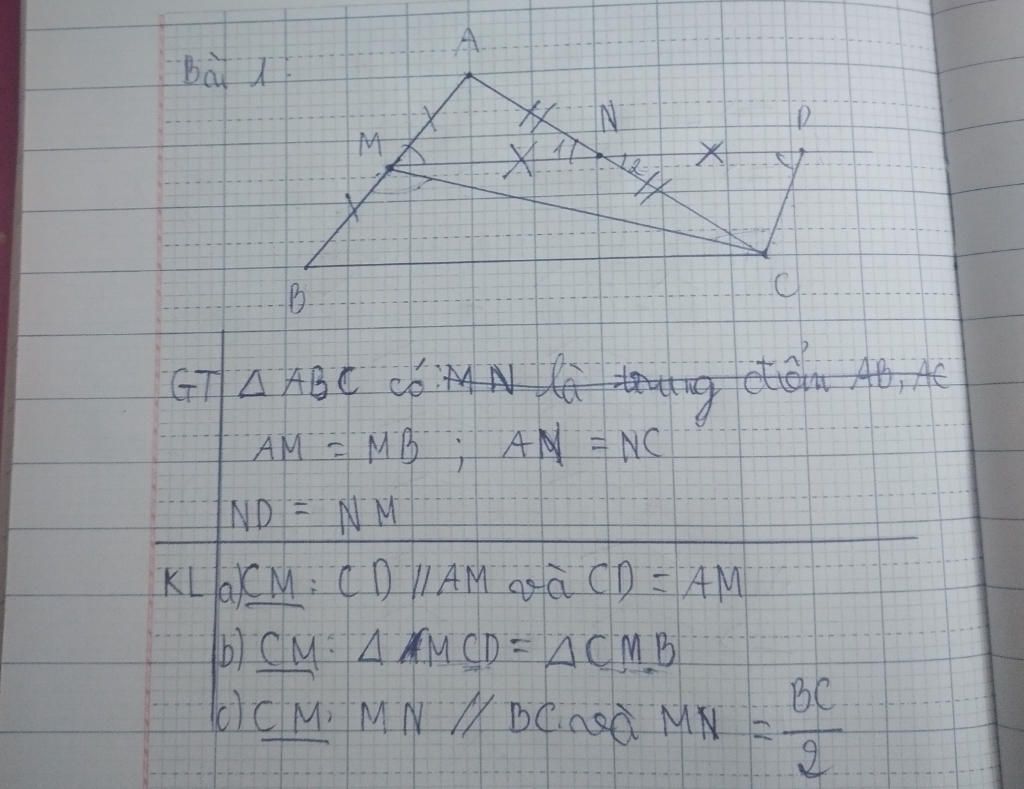 Bài 1
A
M
N
D
1
2
B
C
GT △ ABC có: M N là trung điểm AB, AC
AM = MB ; AN = NC
ND = NM
KL a) CM: CD // AM và CD = AM
b) CM: △ MCD = △ CMB
c) CM: MN // BC và MN = BC/2